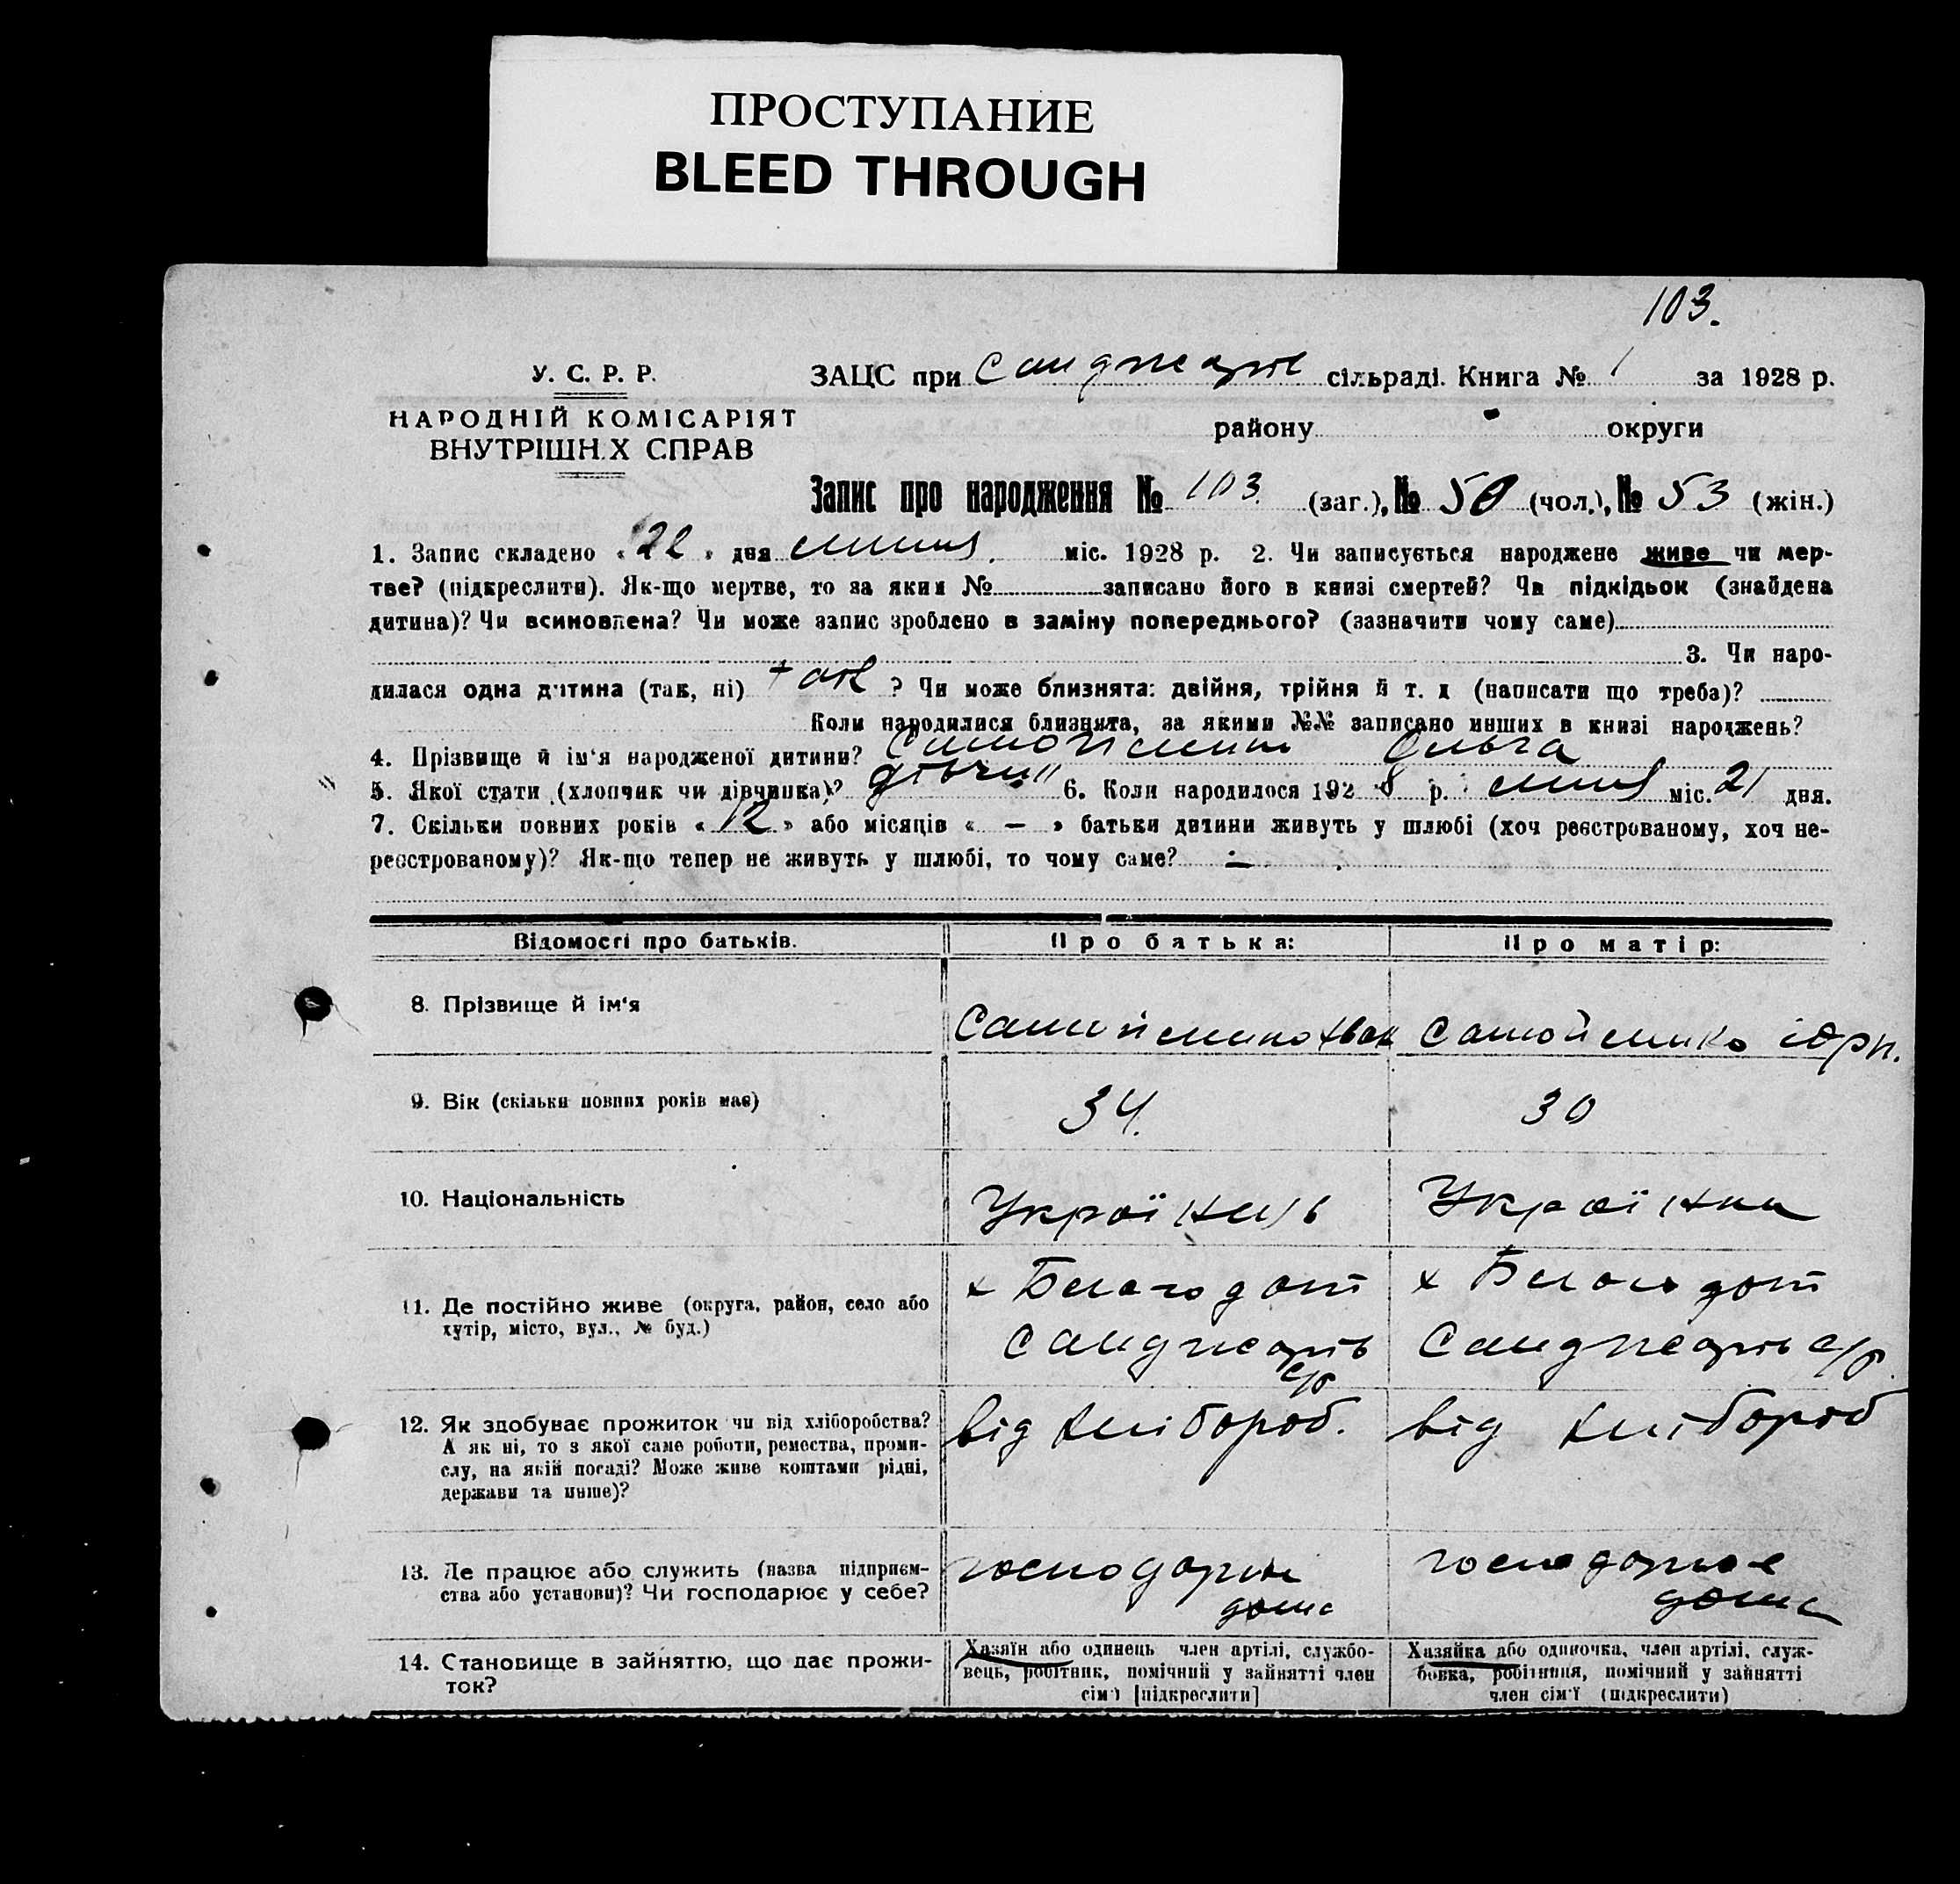 ПРОСТУПАНИЕ
BLEED THROUGH
103.
У. С. Р. Р.
НАРОДНІЙ КОМІСАРІЯТ
ВНУТРІШН.Х СПРАВ
ЗАЦС при сільраді. Книга № 1 за 1928 р.
району округи
Запис про народження № 103. (заг.), № 50 (чол.), № 53 (жін.)
1. Запис складено « 22 » дня липня міс. 1928 р. 2. Чи записується народжене живе чи мер-
тве? (підкреслити). Як-що мертве, то за яким № записано його в книзі смертей? Чи підкідьок (знайдена
дитина)? Чи всиновлена? Чи може запис зроблено в заміну попереднього? (зазначити чому саме)
3. Чи наро-
дилася одна дитина (так, ні) так ? Чи може близнята: двійня, трійня й т. д (написати що треба)?
Коли народилися близнята, за якими №№ записано инших в книзі народжень?
4. Прізвище й ім'я народженої дитини? Самойленко Ольга
5. Якої стати (хлопчик чи дівчинка)? дівчин 6. Коли народилося 1928 р. липня міс. 21 дня.
7. Скільки повних років « 12 » або місяців « — » батьки дитини живуть у шлюбі (хоч реєстрованому, хоч не-
реєстрованому)? Як-що тепер не живуть у шлюбі, то чому саме? —
Відомості про батьків.
Про батька:
Про матір:
8. Прізвище й ім'я
Самойленко Іван
Самойленко
9. Вік (скільки повних років має)
34.
30
10. Національність
Українець
Українка
11. Де постійно живе (округа, район, село або
хутір, місто, вул., № буд.)
х
х
с/р
с/р
12. Як здобуває прожиток чи від хліборобства?
А як ні, то з якої саме роботи, ремества, проми-
слу, на якій посаді? Може живе коштами рідні,
держави та инше)?
від хлібороб.
від хлібороб
13. Де працює або служить (назва підприєм-
ства або установи)? Чи господарює у себе?
дома
господарює
дома
14. Становище в зайняттю, що дає прожи-
ток?
Хазяїн або одинець член артілі, службо-
вець, робітник, помічний у зайнятті член
сім'ї [підкреслити]
Хазяйка або одиночка, член артілі, служ-
бовка, робітниця, помічний у зайнятті
член сім'ї (підкреслити)